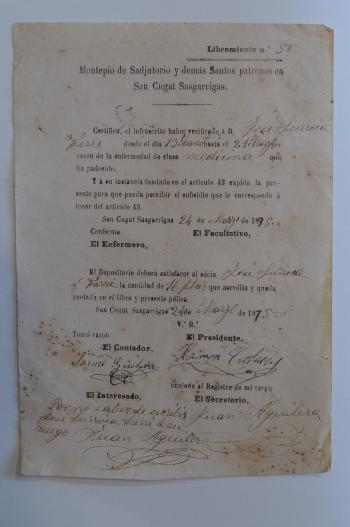 Libramiento n.º 52
Montepío de Sadjutorio y demás Santos patronos en
San Cugat Sasgarrigas.
Certifico, el infrascrito haber verificado á D. José
desde el dia 15 Marzo hasta el 21 Marzo por
razon de la enfermedad de clase medicina que
ha padecido.
Y á su instancia fundada en el artículo 43 expido la pre-
sente para que pueda percibir el subsidio que le corresponde á
tenor del artículo 43.
San Cugat Sasgarrigas 24 de Marzo de 1895
Conforme El Facultativo,
El Enfermero,
El Depositario deberá satisfacer al sócio José
y la cantidad de 16 ptas que acredita y queda
anotada en el libro y presente póliza.
San Cugat Sasgarrigas 24 de Marzo de 1895
V.º B.º
Tomó razon
El Contador, El Presidente,
Jaime Ramon
anotado al Registro de mi cargo
El Interesado, El Secretario,
Por no saber de escribir Juan Aguilera
José á su
ruego Juan Aguilera